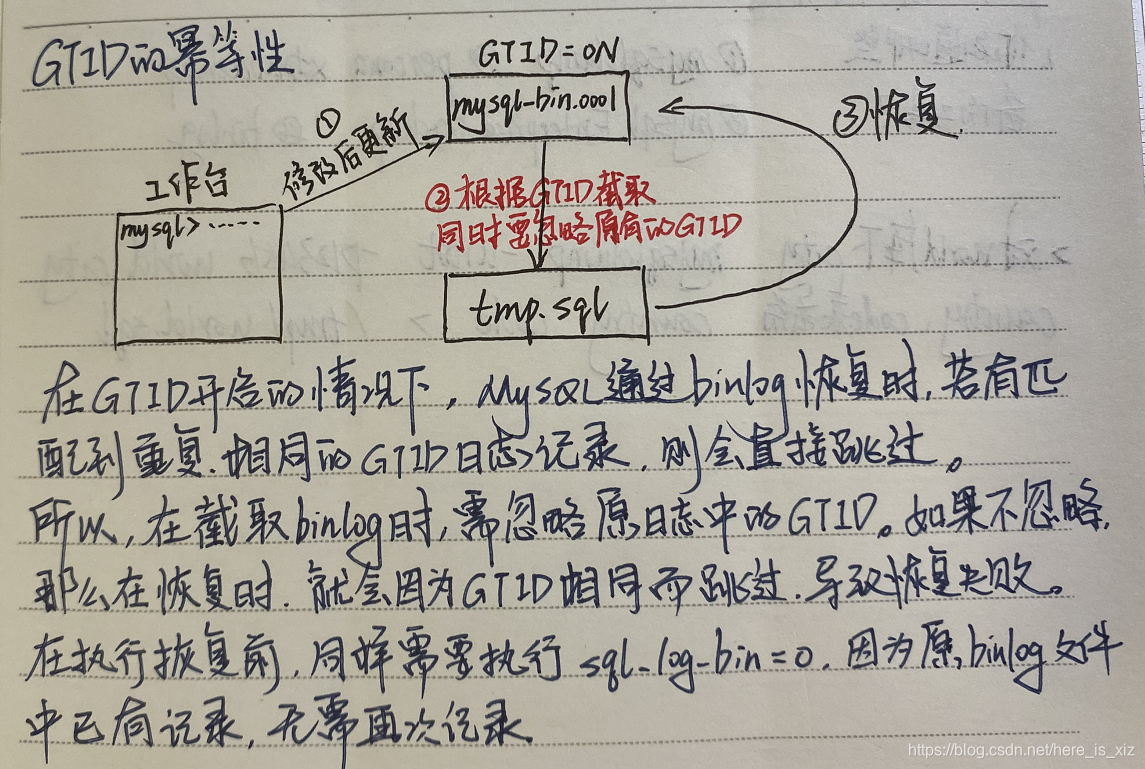 GTID的幂等性
GTID=ON
mysql-bin.0001
①
修改后更新
③恢复
工作台
mysql> ......
②根据GTID截取
同时要忽略原有的GTID
tmp.sql
在GTID开启的情况下，MySQL通过binlog恢复时，若有匹
配到重复、相同的GTID日志记录，则会直接跳过。
所以，在截取binlog时，需忽略原日志中的GTID。如果不忽略，
那么在恢复时，就会因为GTID相同而跳过，导致恢复失败。
在执行恢复前，同样需要执行 sql-log-bin=0，因为原binlog文件
中已有记录，无需再次记录。
https://blog.csdn.net/here_is_xiz